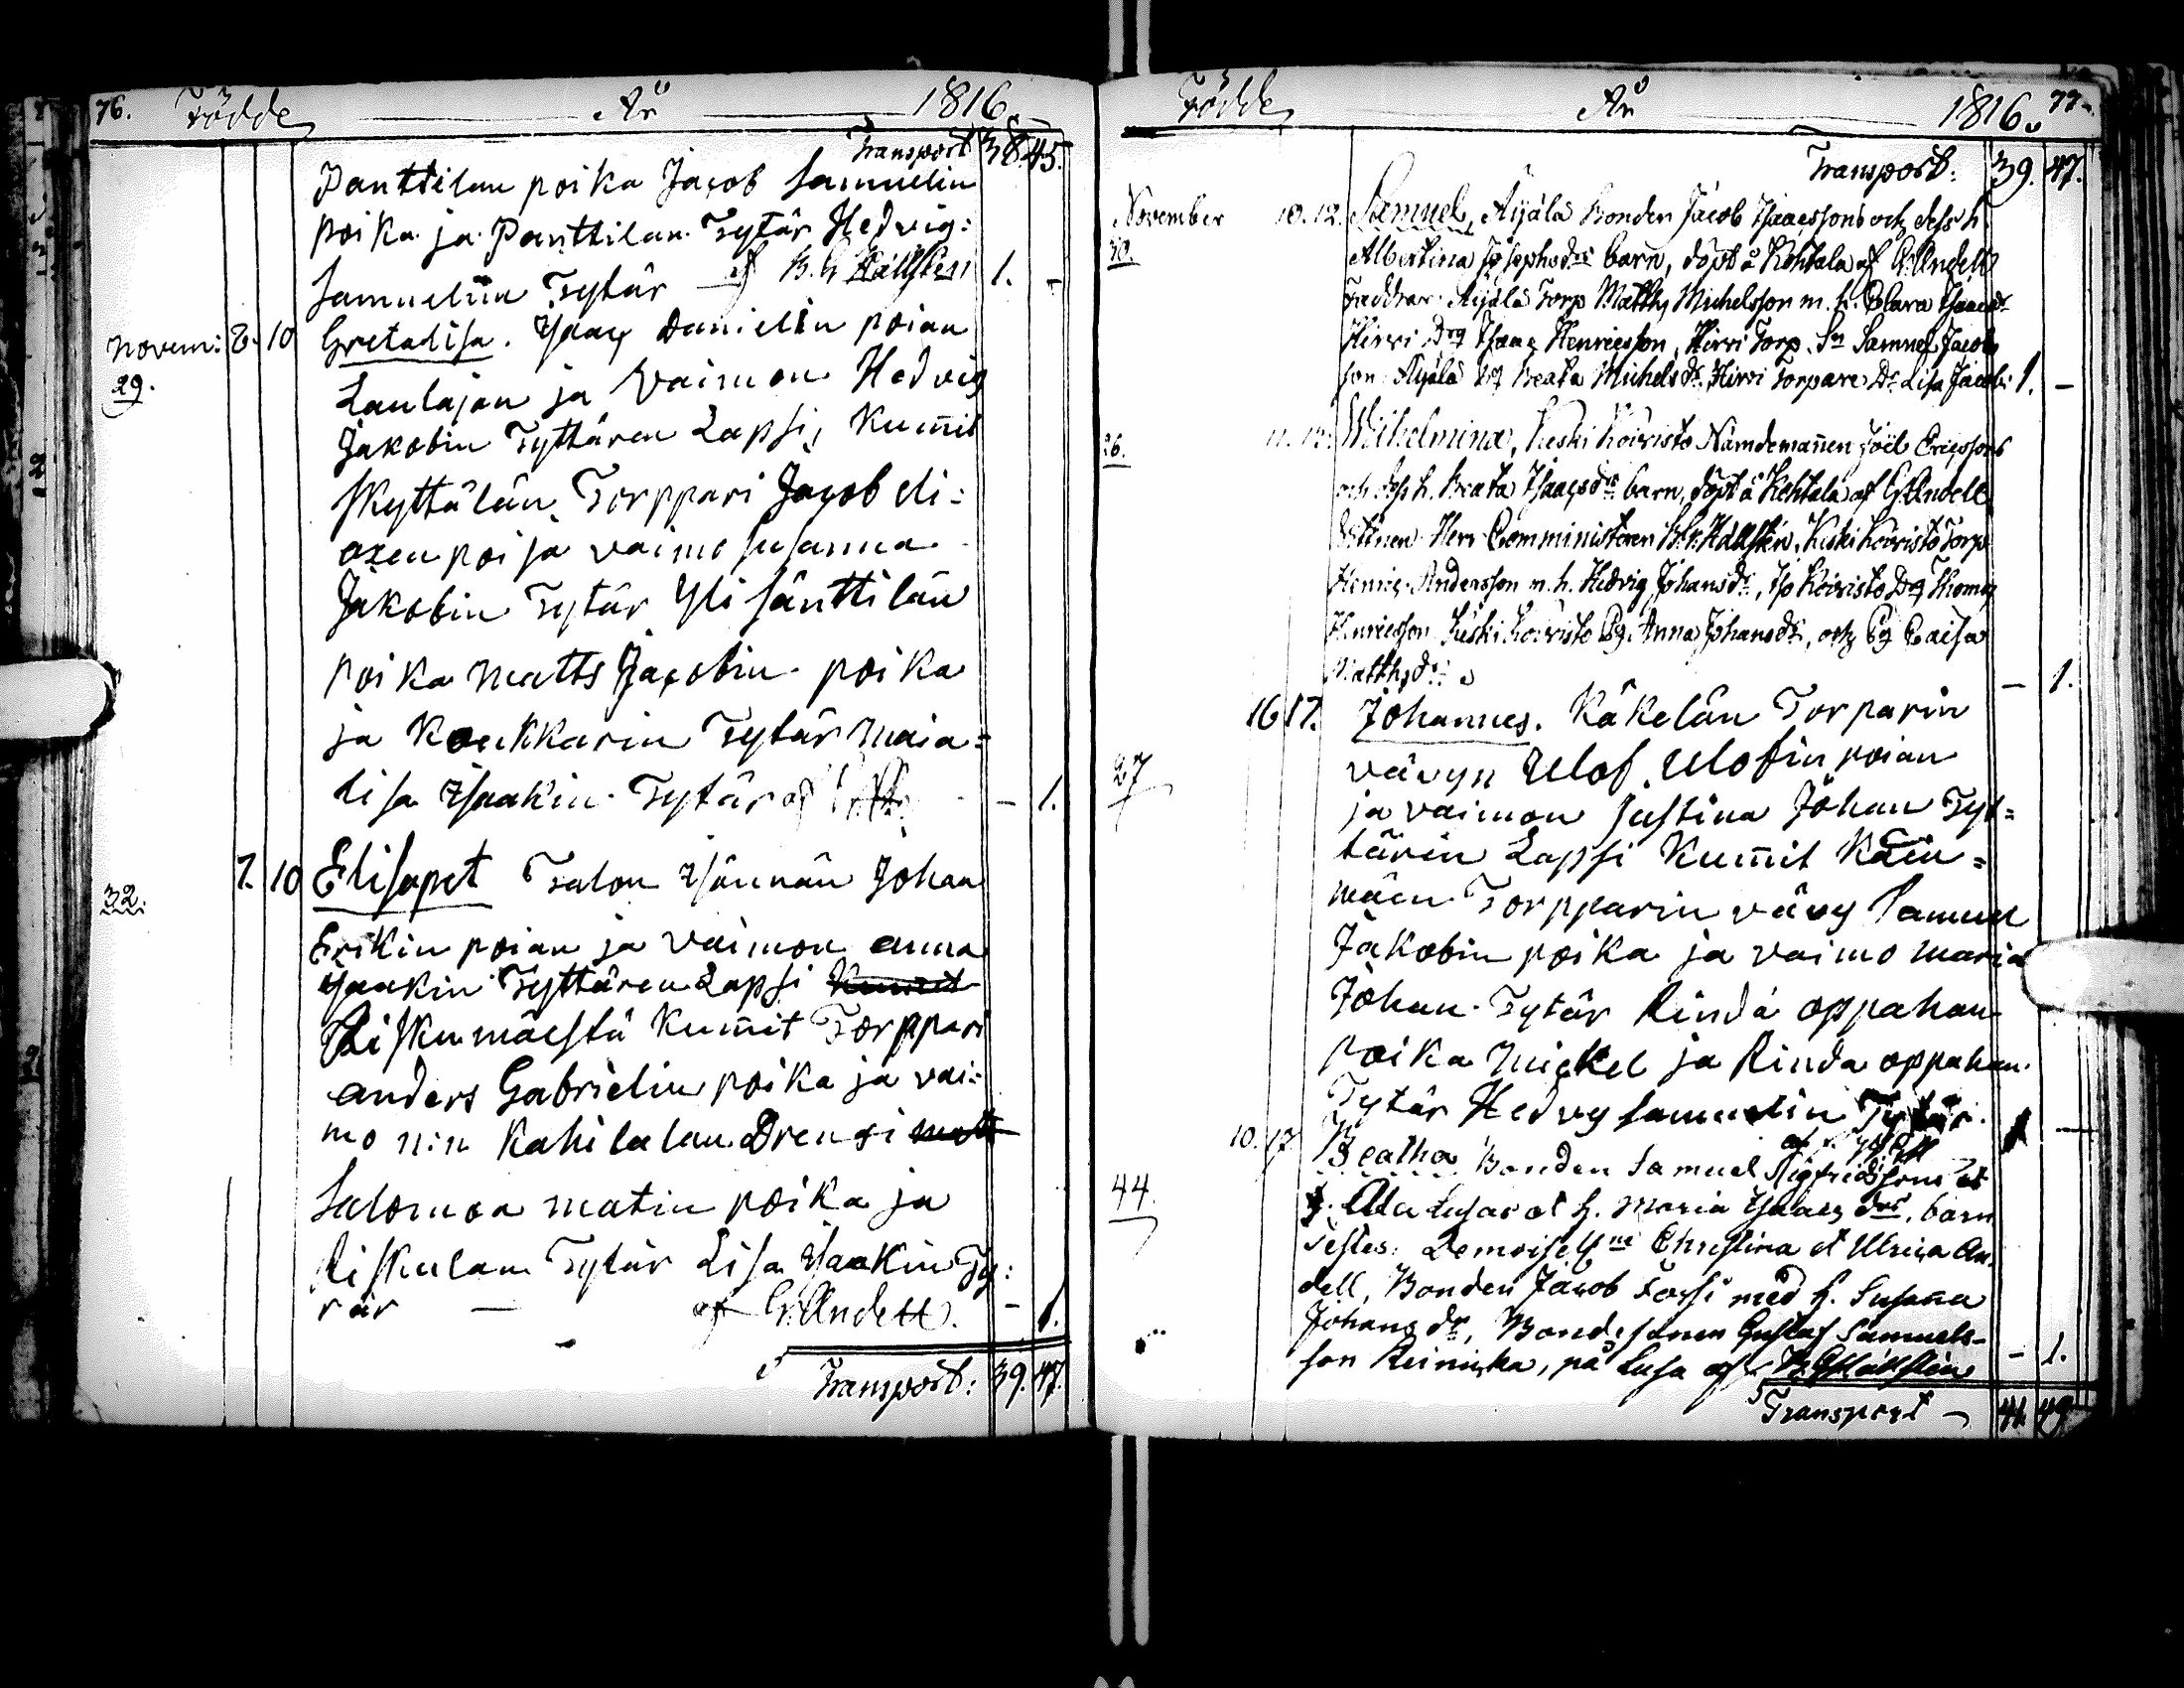 76. Födde År 1816.
Transport 38. 45.
Panttilan poika Jacob Samuelin
poika ja Panttilan Tytär Hedvig:
Samuelin Tytär af B. G. Hällsten 1. -
Novem: 8. 10 Greta Lisa. Isaac Danielin poian
29. Laulajan ja Vaimon Hedvig
Jakobin Tyttären Lapsi, Kum̅it
Kyttälän Torppari Jacob Eli=
axen poi ja vaimo Susanna
Jakobin Tytär Yli Santtilan
poika Matts Jacobin poika
ja Koukkarin Tytär Maia=
Lisa Isaakin Tytär af - 1.
32. 7. 10 Elisapet Talon Isännän Johan
Erikin poian ja Vaimon Anna
Isaakin Tyttären Lapsi Kum̅it
Riskumäestä Kum̅it Torppari
Anders Gabrielin poika ja vai=
mo n:n Kahilalan Drengi Matt
Salomon Matin poika ja
Riskulan Tytär Lisa Isaakin Ty:
tär - af G. Andell. - 1.
Transport: 39. 47.
Födde År 1816. 77.
Transport: 39. 47.
November 10. 12. Samuel, Äijälä Bonden Jacob Isaacssons och dess h.
30. Albertina Josephsdrs barn, döpt å Kohtala af G. Andell
Faddrar Äijälä Torp. Matths Michelsson m. h. Clara Isaacsdr
Hirvi Drg Isaac Henricsson, Hirvi Torp. Sn Samuel Jacobs
son Äijälä Beata Michelsdr. Hirvi Torpare Dr Lisa Jacobs: 1. -
26. 11. 12. Wilhelmina, Keski Koivisto Nämdeman̅en Joël Ericssons
och dess h. Beata Isaacsdrs barn, döpt å Kohtala af G. Andell
Vittnen Herr Comministeren B. G. Hällstén, Keski Koivisto Torp
Henric Andersson m. h. Hedvig Johansdr, Iso Koivisto Drg Thomas
Henricsson Keski Koivisto Pg. Anna Johansdr, och Pg Caisa
Matthsdr: - 1.
16 17. Johannes. Käkelän Torparin
27 vävyn Ulof Ulofin poian
ja vaimon Justina Johan Tyt=
tärin Lapsi Kum̅it
mäen Torpparin vävy Samuel
Jakobin poika ja vaimo Maria
Johan Tytär Rinda oppahan
poika Mickel ja Rinda oppahan
Tytär Hedvig Samuelin Tytär. 1 -
10. 17 Beatha Bonden Samuel Sigfridssons
44. Ala Lusas et h. Maria Isaacs drs. barn
Testes: Demoisellne Christina et Ulrica An
dell, Bonden Jacob Forsi med h. Susanna
Johans dr, Bondesonen Gustaf Samuels-
son Reinikka, på Lusa af B. G. Hällstén - 1.
Transport 41. 49